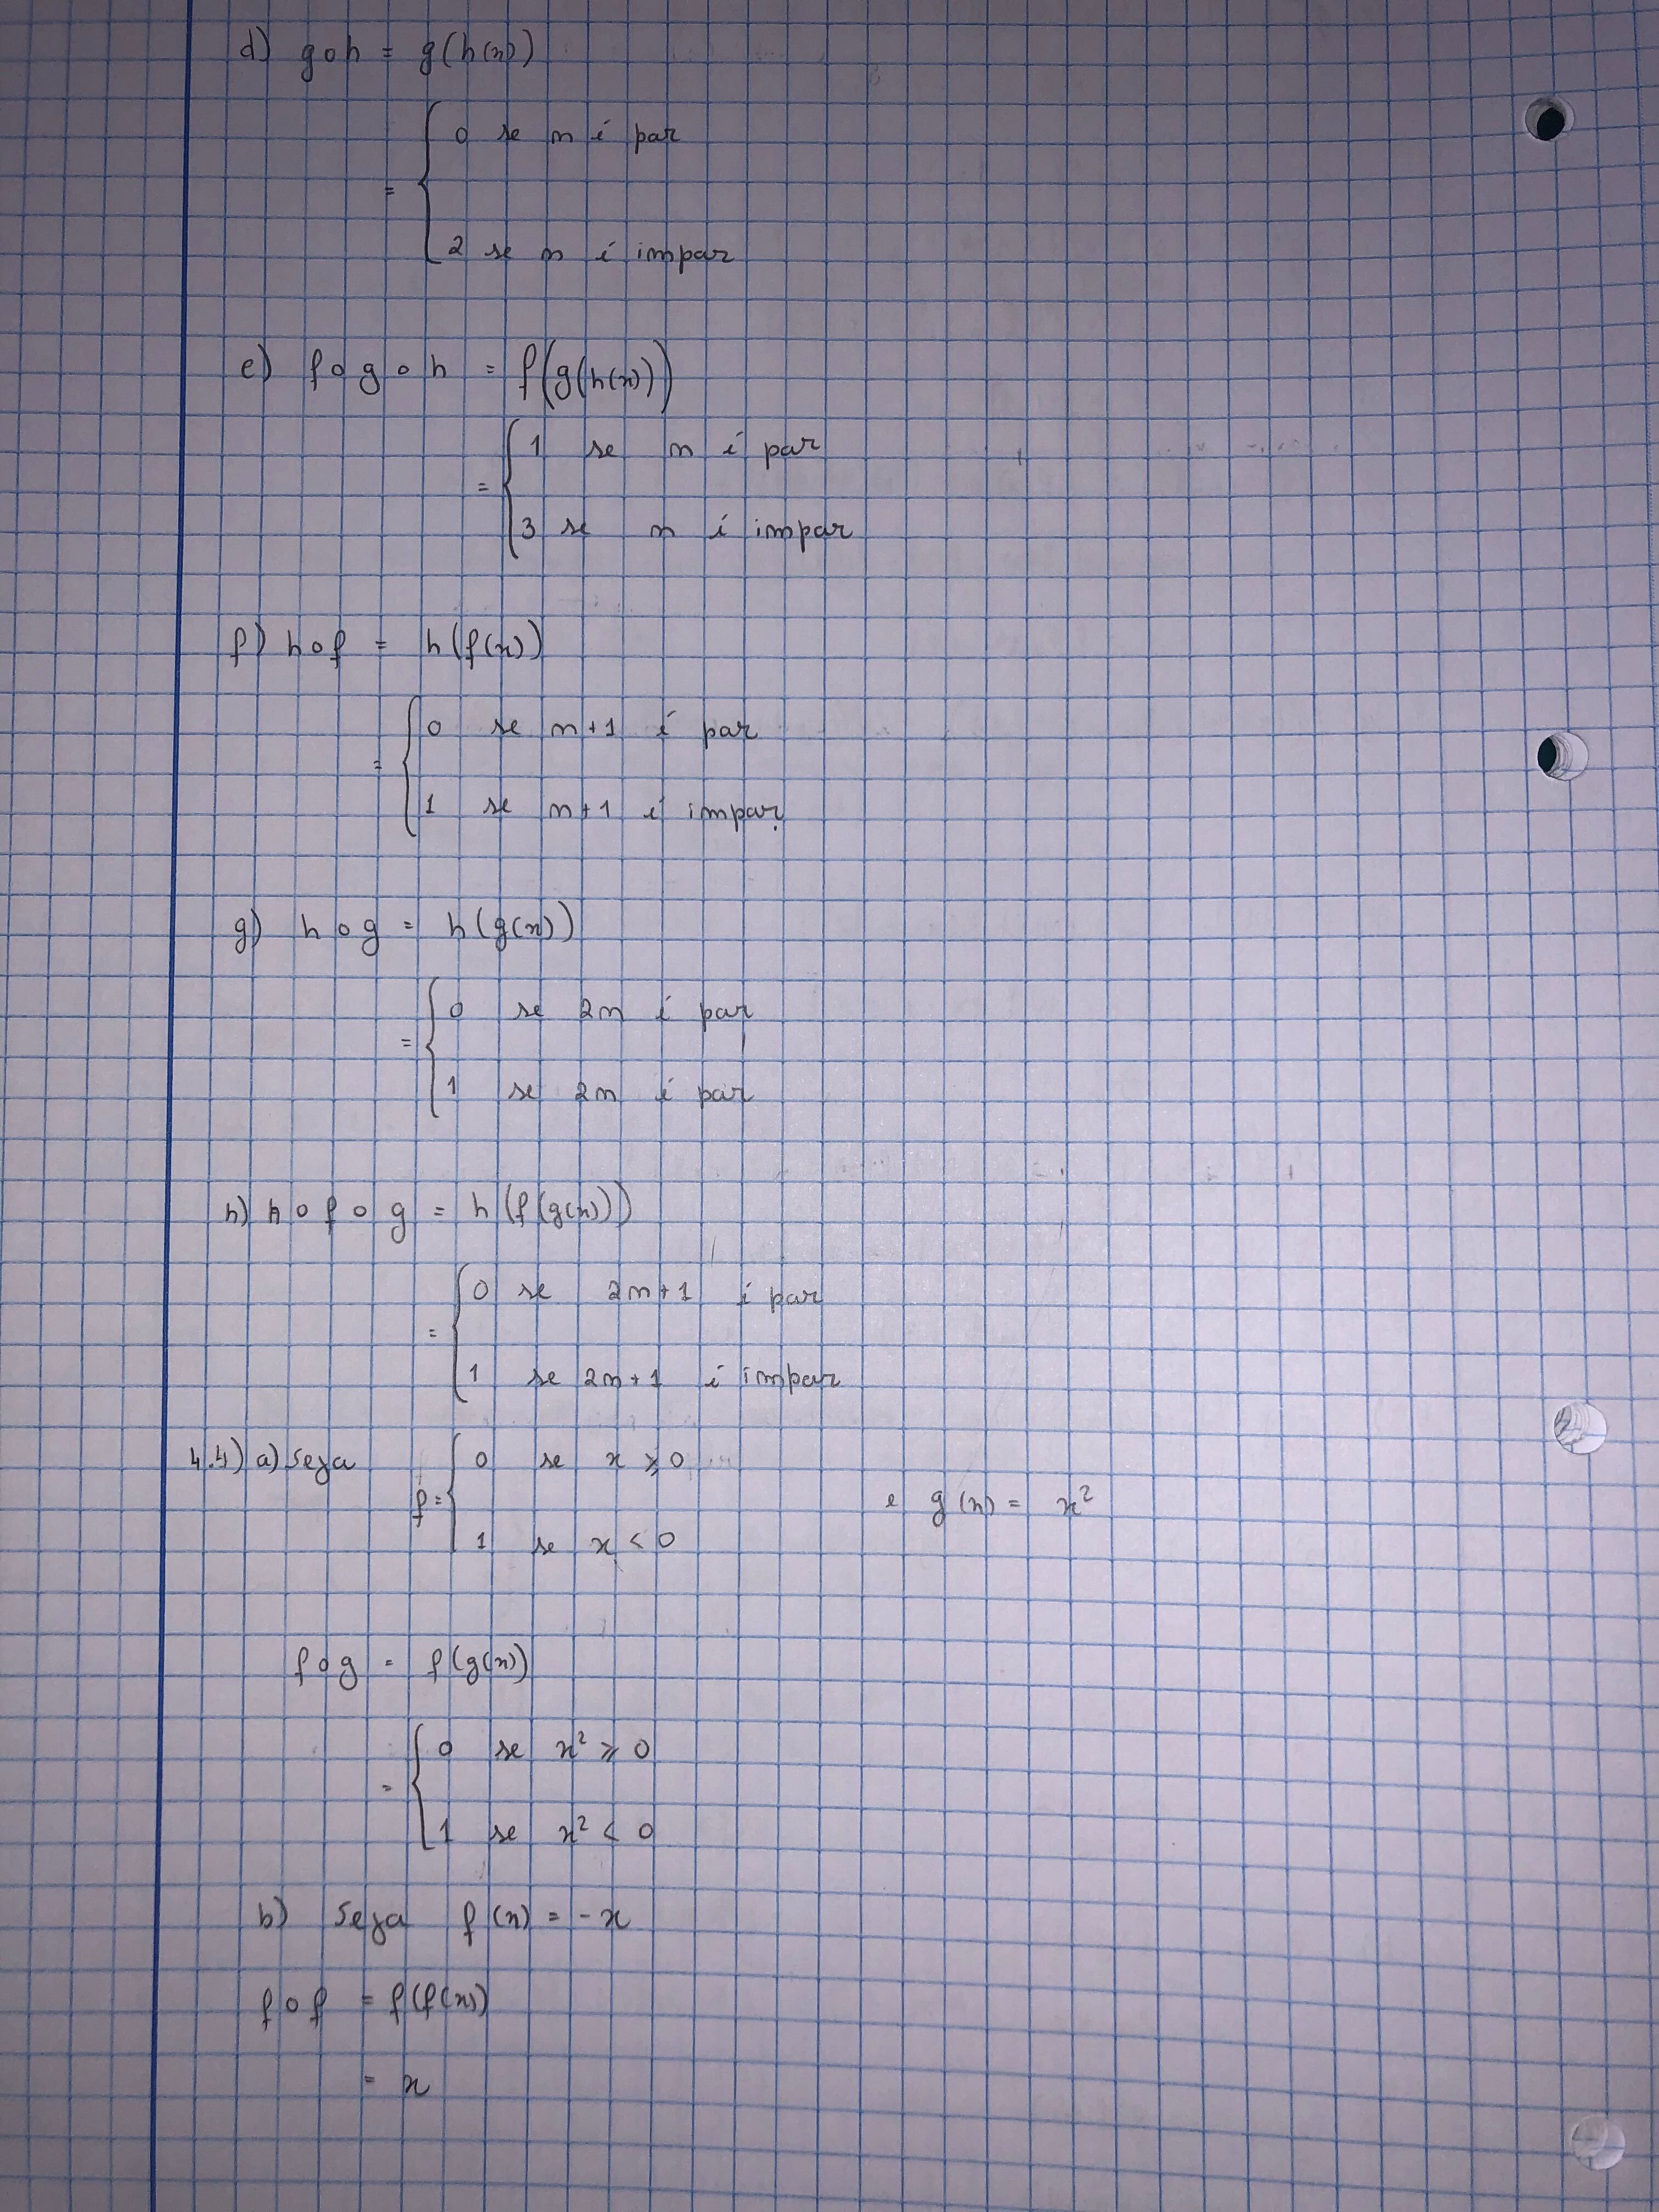 d) g o h = g(h(x))
= { 0 se n é par
2 se n é impar
e) f o g o h = f(g(h(x)))
= { 1 se n é par
3 se n é impar
f) h o f = h(f(x))
= { 0 se n+1 é par
1 se n+1 é impar
g) h o g = h(g(x))
= { 0 se 2n é par
1 se 2n é par
h) h o f o g = h(f(g(x)))
= { 0 se 2n+1 é par
1 se 2n+1 é impar
4.4) a) Seja f = { 0 se x ⩾ 0
1 se x < 0
e g(x) = x²
f o g = f(g(x))
= { 0 se x² ⩾ 0
1 se x² < 0
b) Seja f(x) = -x
f o f = f(f(x))
= x